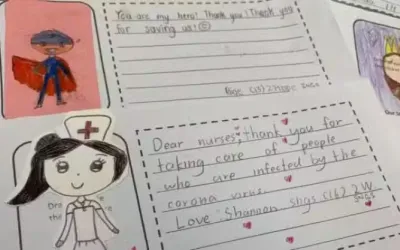 You are my hero! Thank you! Thank you
for saving us!
Dear nurses, thank you for
taking care of people
who are infected by the
corona virus.
Love: Shannon shgs